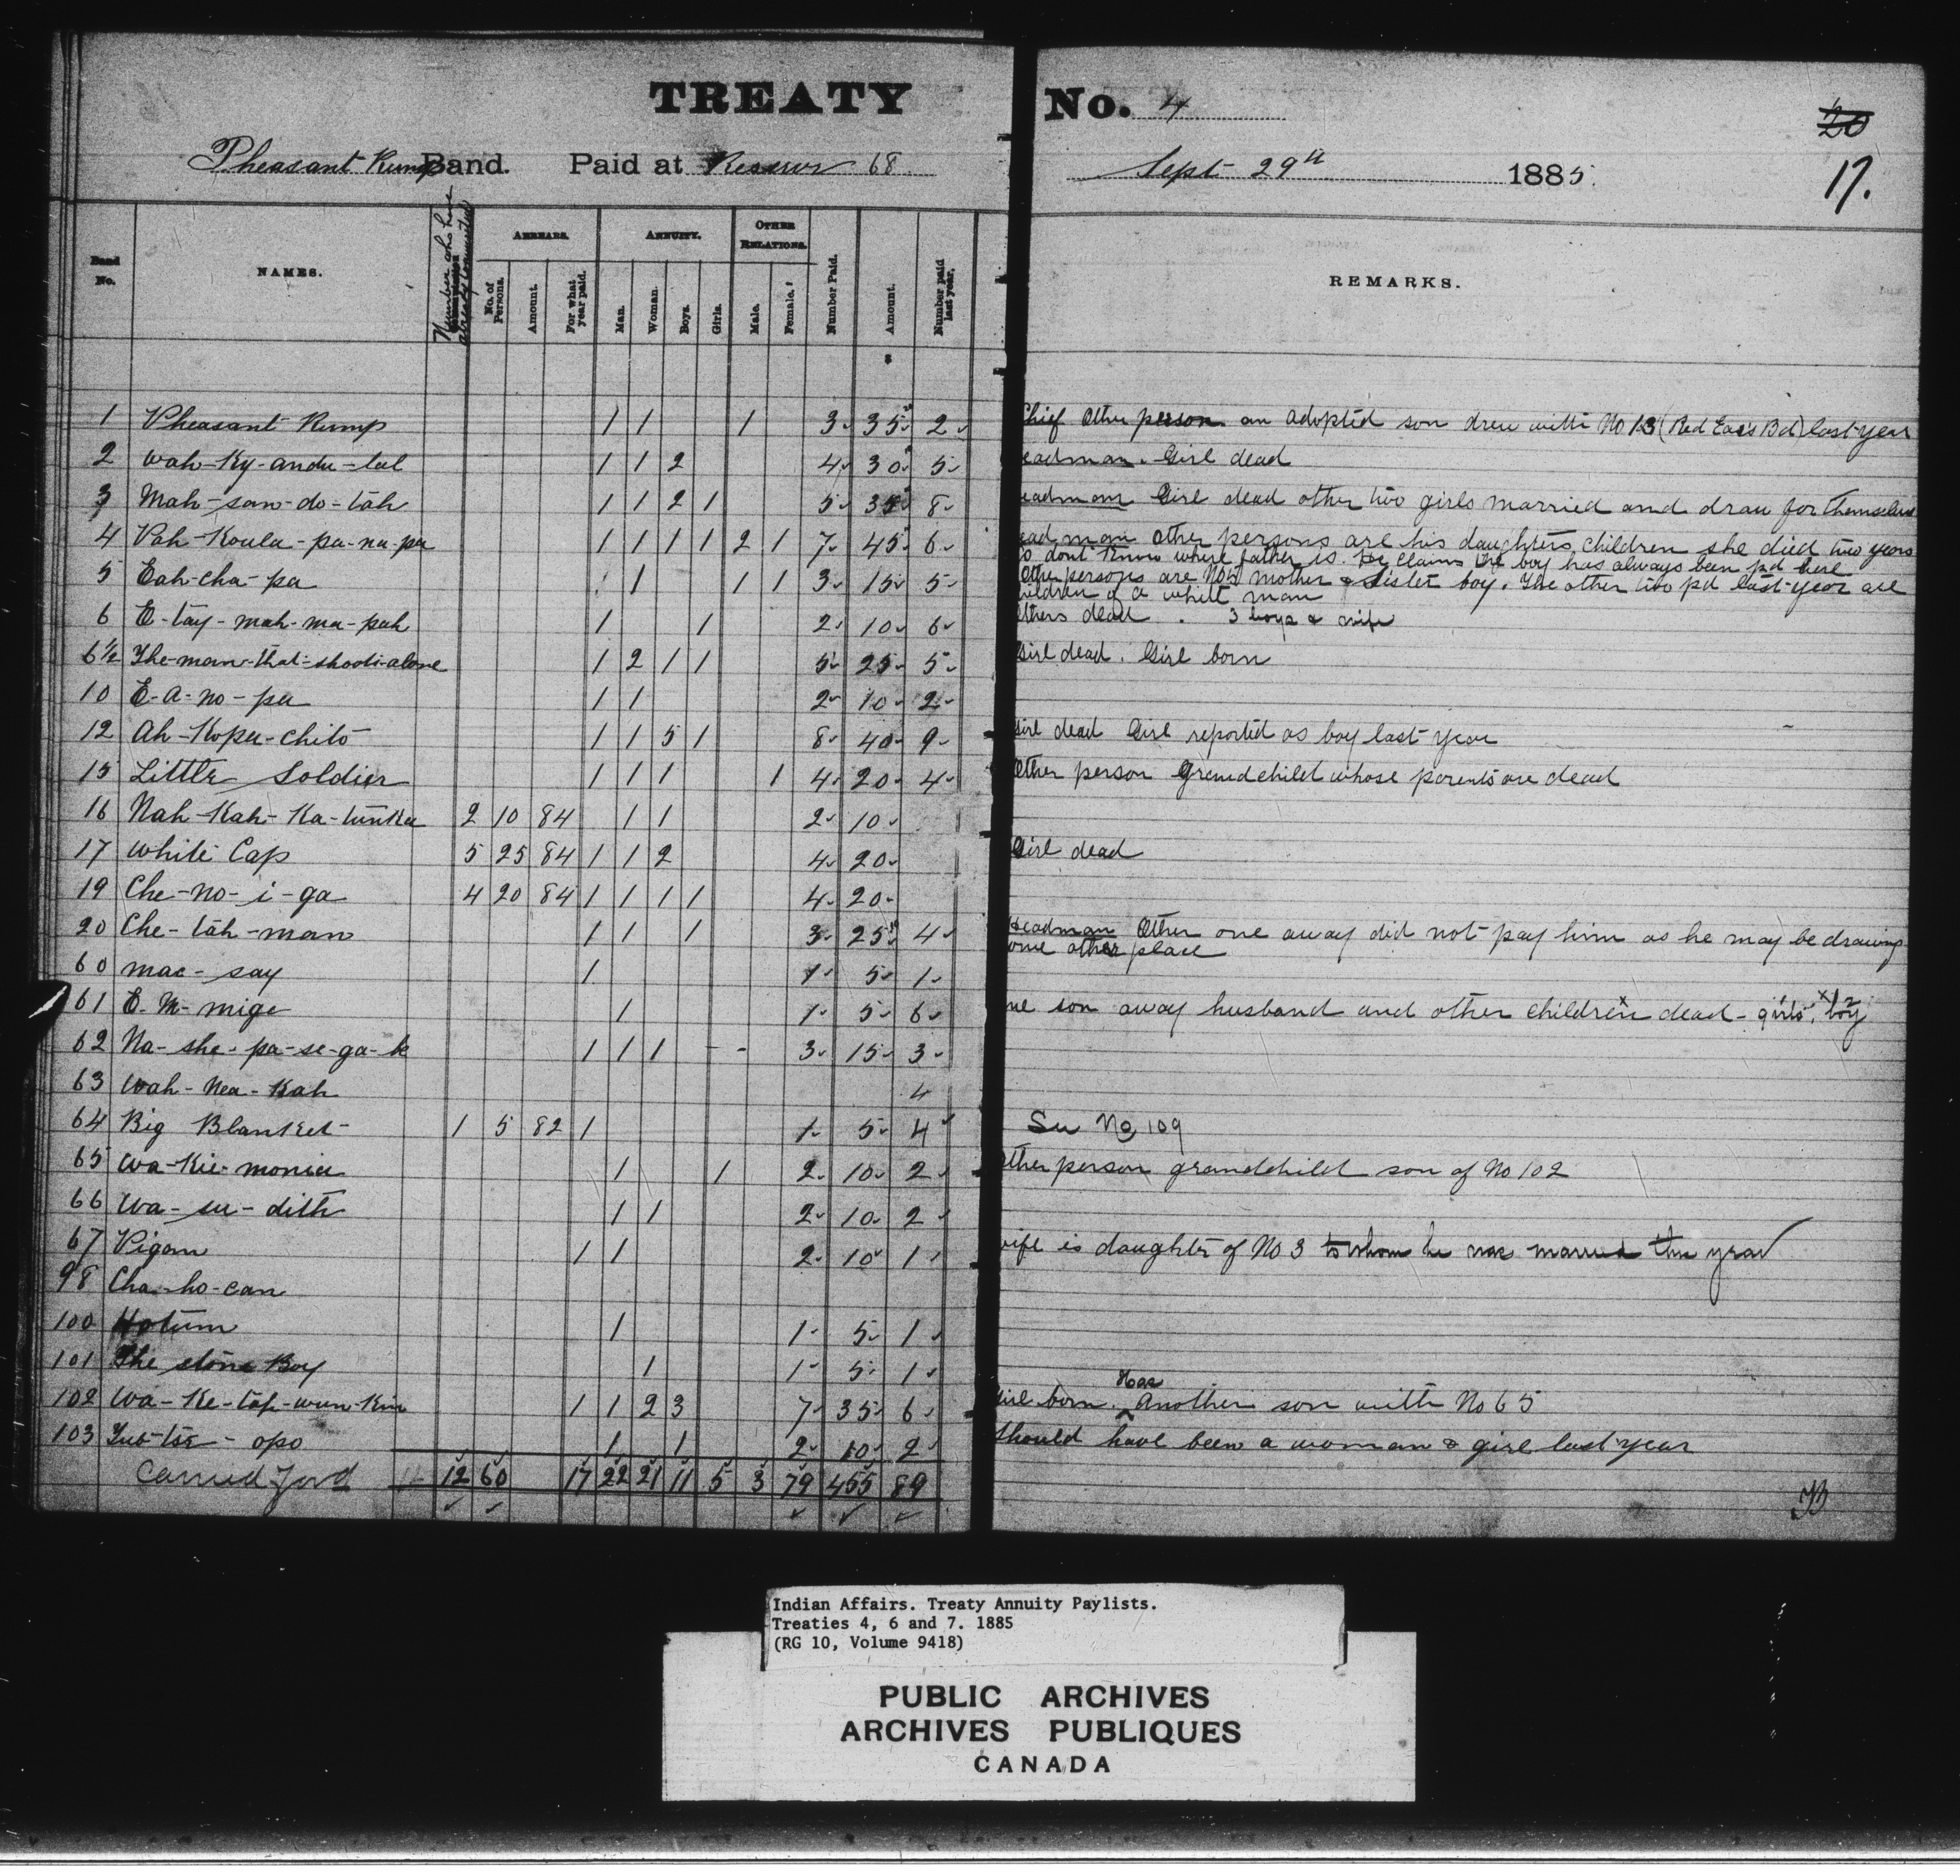 TREATY No. 4
20
17.
Pheasant Rump Band. Paid at Reserve 68 Sept 29th 1885.
Band No. NAMES. Number who have already commuted ARREARS. ANNUITY. OTHER RELATIONS. Number Paid. Amount. Number paid last year. REMARKS.
No. of Persons. Amount. For what year paid. Man. Woman. Boys. Girls. Male. Female.
$
1 Pheasant Rump 1 1 1 3 35 2 Chief Other person an adopted son drew with No 13 (Red Ears Bd) last year
2 Wah-Ky-andu-tal 1 1 2 4 30 5 eadman. Girl dead
3 Mah-san-do-tah 1 1 2 1 5 35 8 eadman Girl dead other two girls married and draw for themselves
4 Pah-Koula-pa-na-pa 1 1 1 1 2 1 7 45 6 ead man other persons are his daughters children she died two years
o dont know where father is. He claims the boy has always been pd here
5 Eah-cha-pa 1 1 1 3 15 5 Other persons are No 5 mother & sister boy. The other two pd last year are
hildren of a white man
6 E-tay-mah-ma-pah 1 1 2 10 6 Others dead. 3 boys & wife
6½ The-man-that-shoots-alone 1 2 1 1 5 25 5 Girl dead. Girl born
10 E-a-no-pa 1 1 2 10 2
12 Ah-Kopa-chito 1 1 5 1 8 40 9 Girl dead Girl reported as boy last year
15 Little Soldier 1 1 1 1 4 20 4 Other person Grandchild whose parents are dead
16 Nah-Kah-Ka-tunka 2 10 84 1 1 2 10
17 White Cap 5 25 84 1 1 2 4 20 Girl dead
19 Che-no-i-ga 4 20 84 1 1 1 1 4 20
20 Che-tah-man 1 1 1 3 25 4 Headman Other one away did not pay him as he may be drawing
ome other place
60 mac-say 1 1 5 1
61 E-M-mige 1 1 5 6 ne son away husband and other children dead - girls, boy
62 Na-she-pa-se-ga-k 1 1 1 - - 3 15 3
63 Wah-Nea-Kah 4
64 Big Blanket 1 5 82 1 1 5 4 See No 109
65 Wa-Kie-monia 1 1 2 10 2 Other person grandchild son of No 102
66 Wa-su-dith 1 1 2 10 2
67 Pigan 1 1 2 10 1 wife is daughter of No 3 to whom he was married this year
98 Cha-ho-can
100 Hotum 1 1 5 1
101 The stone Boy 1 1 5 1
102 Wa-Ke-tap-wun-Kin 1 1 2 3 7 35 6 Girl born. Has Another son with No 65
103 Tub-tse-opo 1 1 2 10 2 Should have been a woman & girl last year
Carried Ford 12 60 17 22 21 11 5 3 79 455 89
Indian Affairs. Treaty Annuity Paylists.
Treaties 4, 6 and 7. 1885
(RG 10, Volume 9418)
PUBLIC ARCHIVES
ARCHIVES PUBLIQUES
CANADA